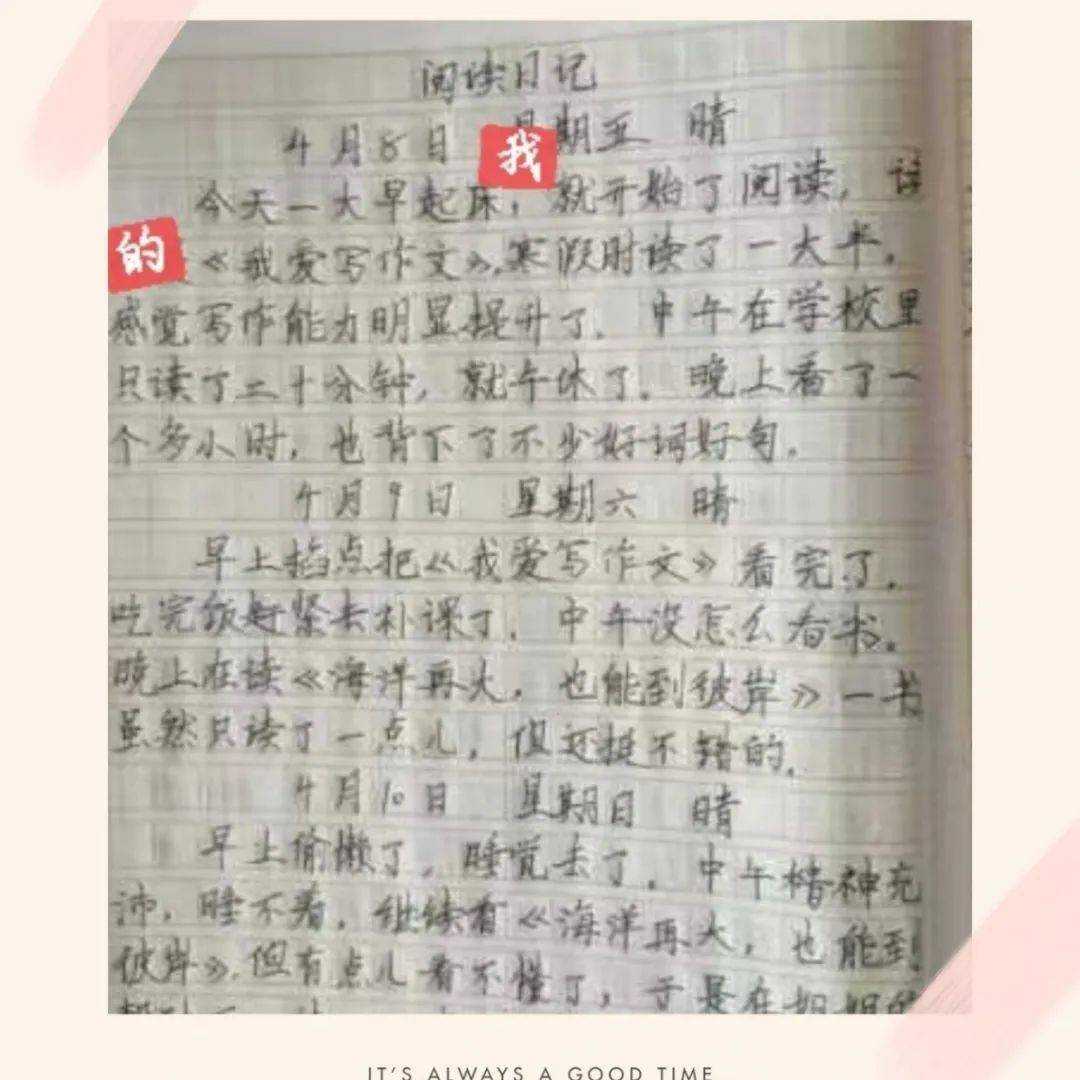 阅读日记
4月8日 星期五 晴
我
今天一大早起床，就开始了阅读，读
的
《我爱写作文》，寒假时读了一大半，
感觉写作能力明显提升了。中午在学校里
只读了二十分钟，就午休了。晚上看了一
个多小时，也背下了不少好词好句。
4月9日 星期六 晴
早上掐点把《我爱写作文》看完了，
吃完饭赶紧去补课了，中午没怎么看书。
晚上在读《海洋再大，也能到彼岸》一书
虽然只读了一点儿，但还挺不错的。
4月10日 星期日 晴
早上偷懒了，睡觉去了。中午精神充
沛，睡不着，继续看《海洋再大，也能到
彼岸》，但有点儿看不懂了，于是在姐姐的
IT'S ALWAYS A GOOD TIME